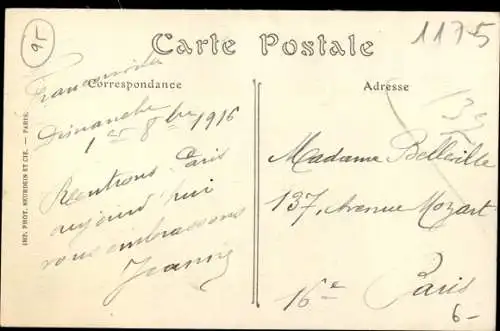 95
1175
Carte Postale
Correspondance
Adresse
Franconville
Dimanche
1er 8bre 1916
Rentrons Paris
aujourd'hui
vous embrassons
Jeanne
Madame Belleville
137, Avenue Mozart
16e
Paris
6-
IMP. PHOT. NEURDEIN ET CIE. — PARIS.